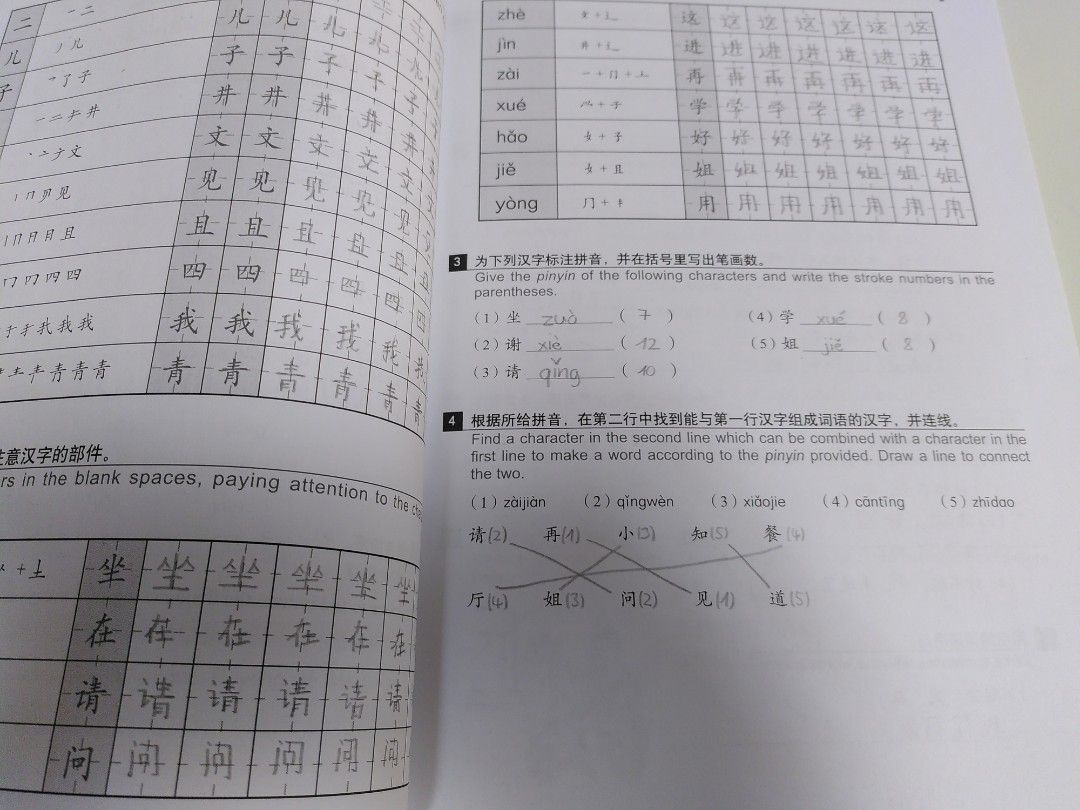 二 一 二 儿 儿 儿 儿
儿 丿 儿 子 子 子 子 子
子 了 子 井 井 井 井 井
一 二 井 文 文 文 文 文
文 见 见 见 见 见
见 且 且 且 且 且
且 四 四 四 四 四 四
四 四 我 我 我 我 我
我 我 青 青 青 青 青 青
青 青 青
意汉字的部件。
rs in the blank spaces, paying attention to the
+ 土 坐 坐 坐 坐 坐 坐
在 在 在 在 在 在
请 请 请 请 请 请
问 问 问 问 问 问
zhè 文 + 辶 这 这 这 这 这 这 这
jìn 井 + 辶 进 进 进 进 进 进 进
zài 一 + 冂 + 土 再 再 再 再 再 再 再
xué 学 学 学 学 学 学 学
hǎo 女 + 子 好 好 好 好 好 好 好
jiě 女 + 且 姐 姐 姐 姐 姐 姐 姐
yòng 用 用 用 用 用 用 用
3 为下列汉字标注拼音，并在括号里写出笔画数。
Give the pinyin of the following characters and write the stroke numbers in the
parentheses.
(1) 坐 zuò ( 7 ) (4) 学 xué ( 8 )
(2) 谢 xiè ( 12 ) (5) 姐 jiě ( 8 )
(3) 请 qǐng ( 10 )
4 根据所给拼音，在第二行中找到能与第一行汉字组成词语的汉字，并连线。
Find a character in the second line which can be combined with a character in the
first line to make a word according to the pinyin provided. Draw a line to connect
the two.
(1) zàijiàn (2) qǐngwèn (3) xiǎojie (4) cāntīng (5) zhīdao
请(2) 再(1) 小(3) 知(5) 餐(4)
厅(4) 姐(3) 问(2) 见(1) 道(5)